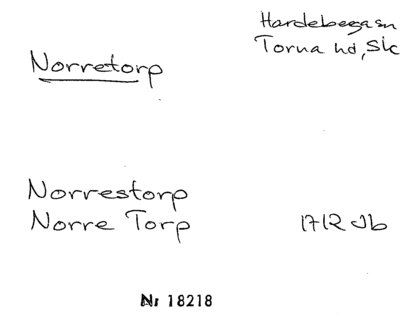 Hardeberga sn
Torna hd, Sk
Norretorp
Norrestorp
Norre Torp 1712 Jb
Nr 18218